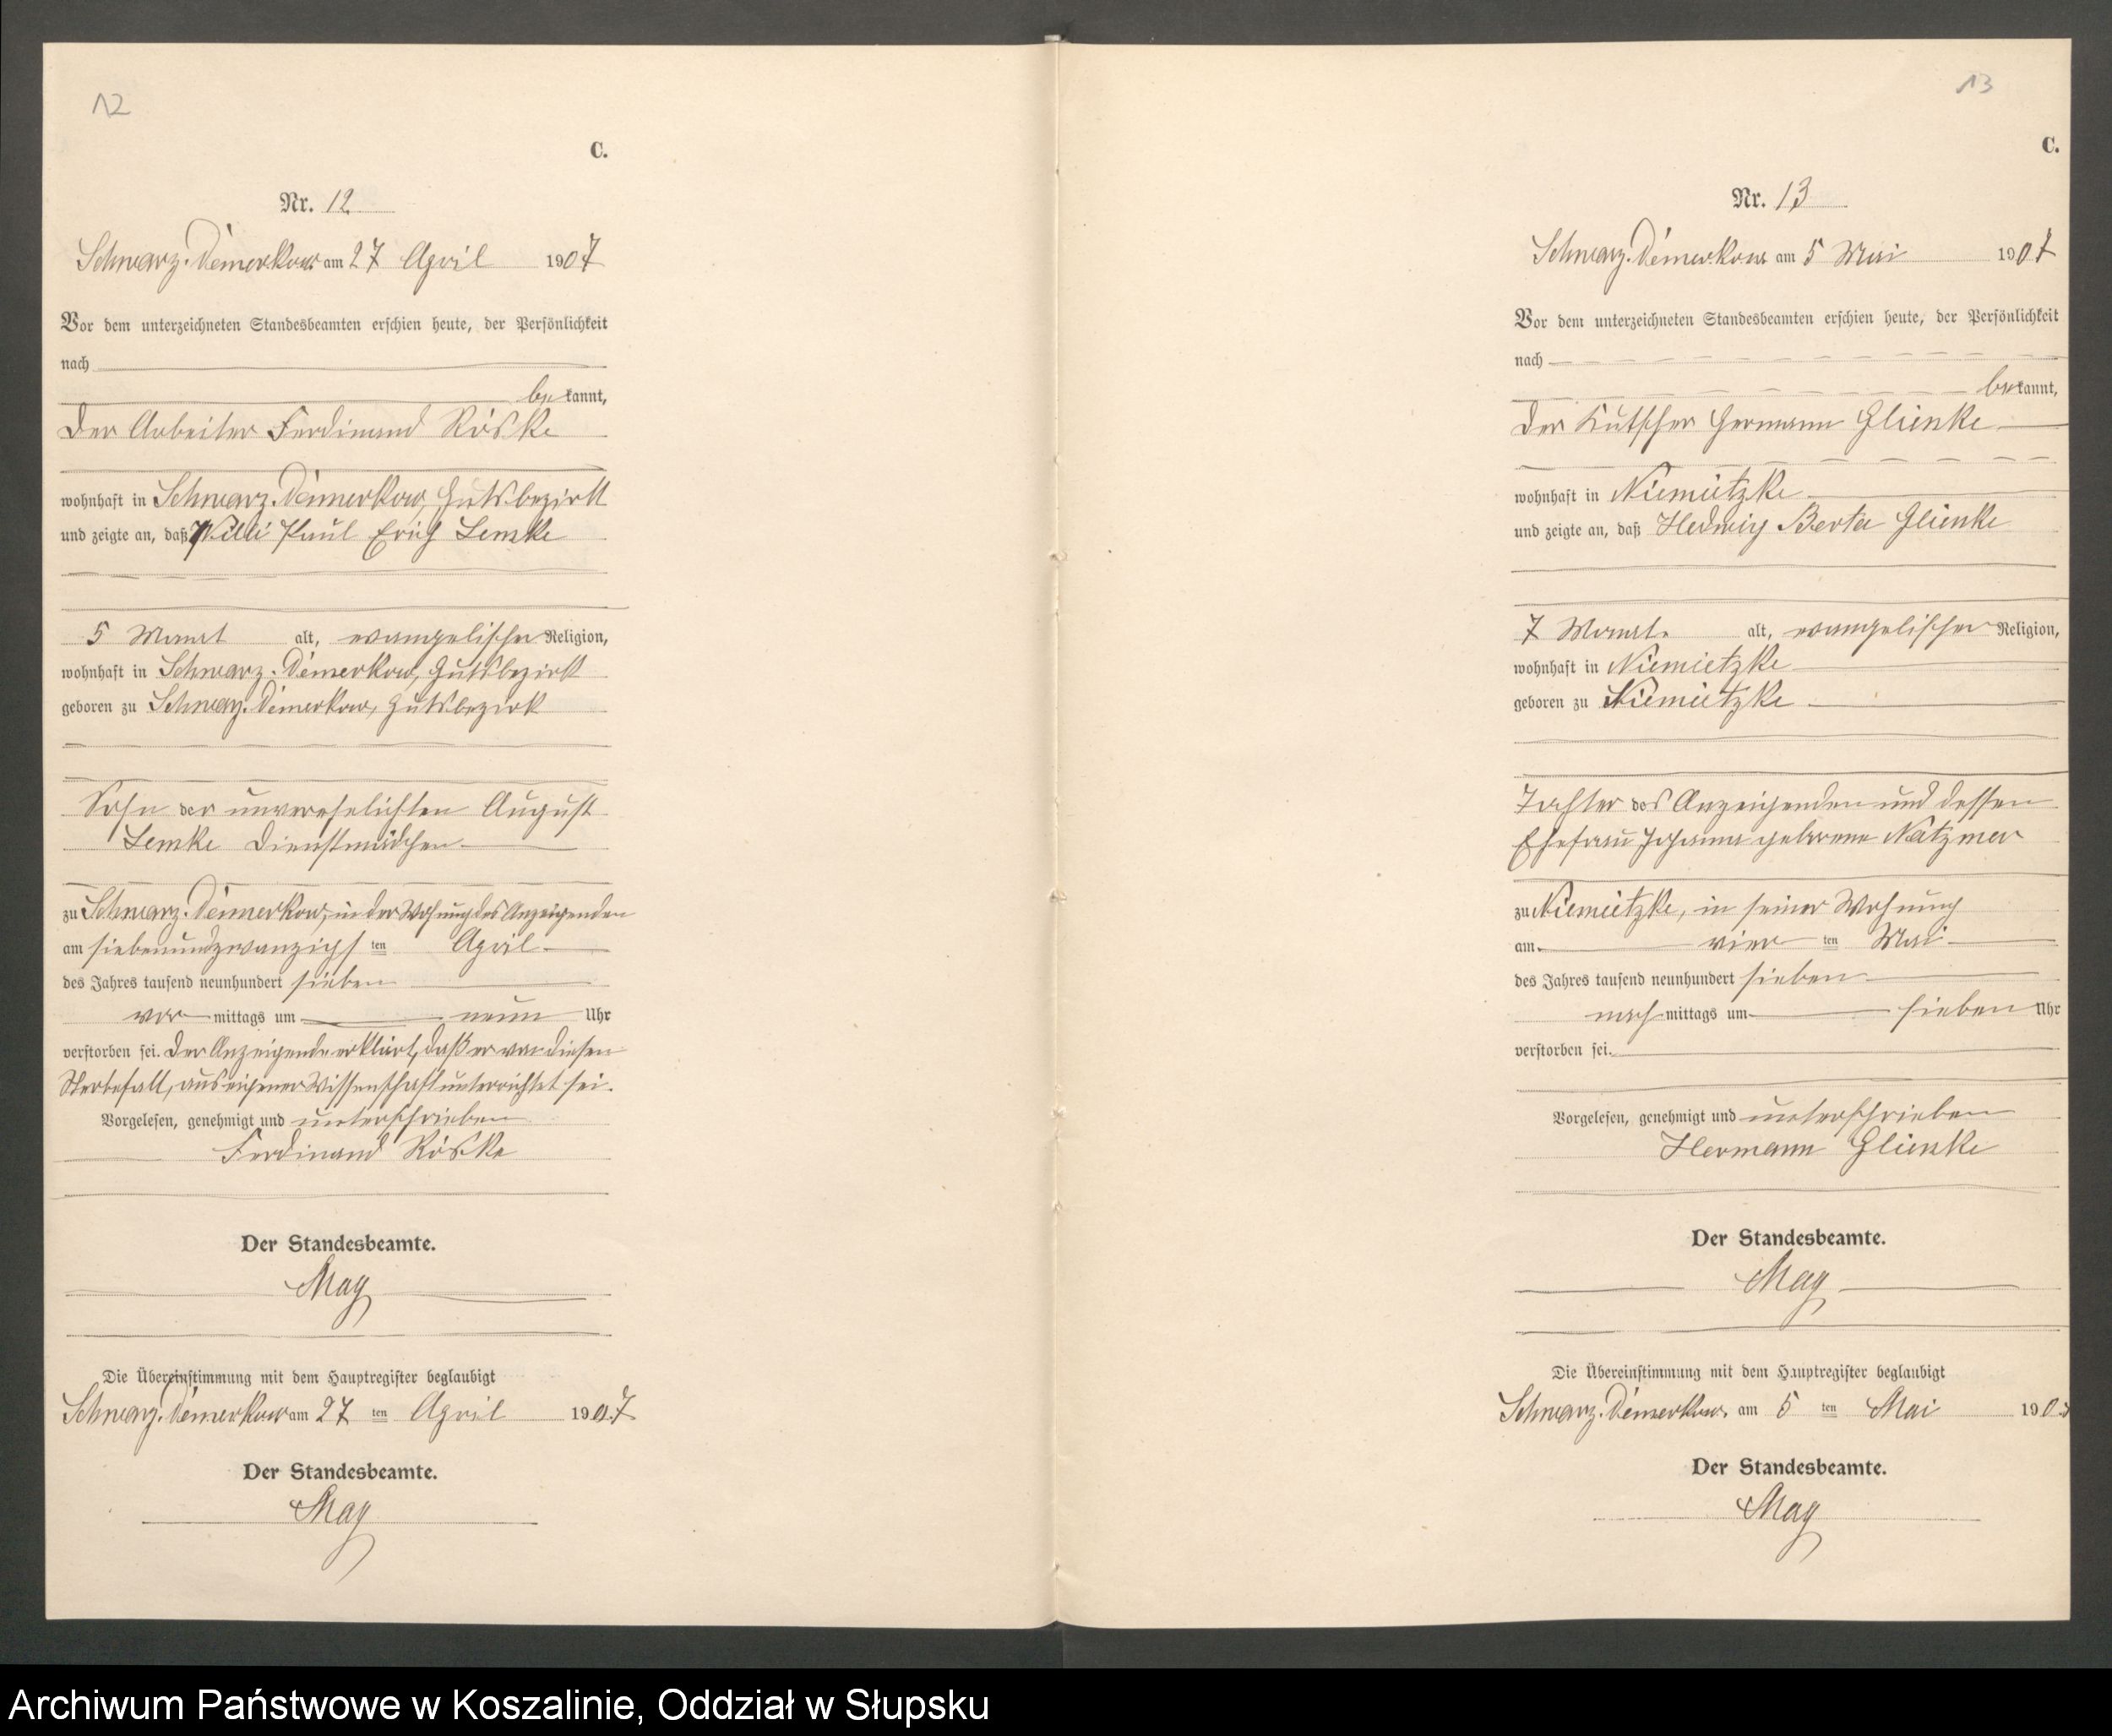 12
C.
Nr. 12
Schwarz-Damerkow am 27 April 1907
Vor dem unterzeichneten Standesbeamten erschien heute, der Persönlichkeit
nach
bekannt,
der Arbeiter Ferdinand Röske
wohnhaft in Schwarz-Damerkow, Gutsbezirk
und zeigte an, daß Willi Paul Erich Lemke
5 Monat alt, evangelischer Religion,
wohnhaft in Schwarz-Damerkow, Gutsbezirk
geboren zu Schwarz-Damerkow, Gutsbezirk
Sohn der unverehelichten August
Lemke Dienstmädchen
zu Schwarz-Damerkow, in der Wohnung des Anzeigenden
am siebenundzwanzigsten April
des Jahres tausend neunhundert sieben
vormittags um neun Uhr
verstorben sei. Der Anzeigende erklärt, daß er von diesen
Sterbefall, aus eigener Wissenschaft unterrichtet sei.
Vorgelesen, genehmigt und unterschrieben
Ferdinand Röske
Der Standesbeamte.
May
Die Übereinstimmung mit dem Hauptregister beglaubigt
Schwarz-Damerkow am 27 ten April 1907
Der Standesbeamte.
May
13
C.
Nr. 13
Schwarz-Damerkow am 5 Mai 1907
Vor dem unterzeichneten Standesbeamten erschien heute, der Persönlichkeit
nach
bekannt,
der Kutscher Hermann Glienke
wohnhaft in Niemietzke
und zeigte an, daß Hedwig Berta Glienke
7 Monat alt, evangelischer Religion,
wohnhaft in Niemietzke
geboren zu Niemietzke
Tochter des Anzeigenden und dessen
Ehefrau Johanna geborene Natzmer
zu Niemietzke, in seiner Wohnung
am vier ten Mai
des Jahres tausend neunhundert sieben
nachmittags um sieben Uhr
verstorben sei.
Vorgelesen, genehmigt und unterschrieben
Hermann Glienke
Der Standesbeamte.
May
Die Übereinstimmung mit dem Hauptregister beglaubigt
Schwarz-Damerkow, am 5 ten Mai 190
Der Standesbeamte.
May
Archiwum Państwowe w Koszalinie, Oddział w Słupsku